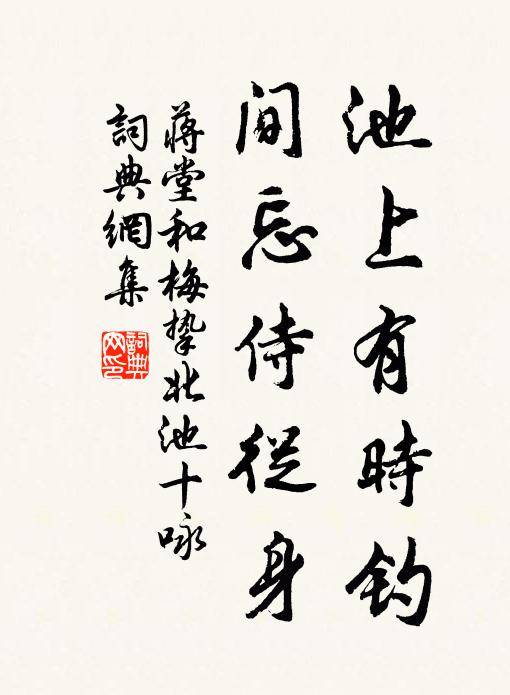 池上有時釣
间忘侍從身
蔣堂和梅摯北池十咏
詞典網集
詞典網印